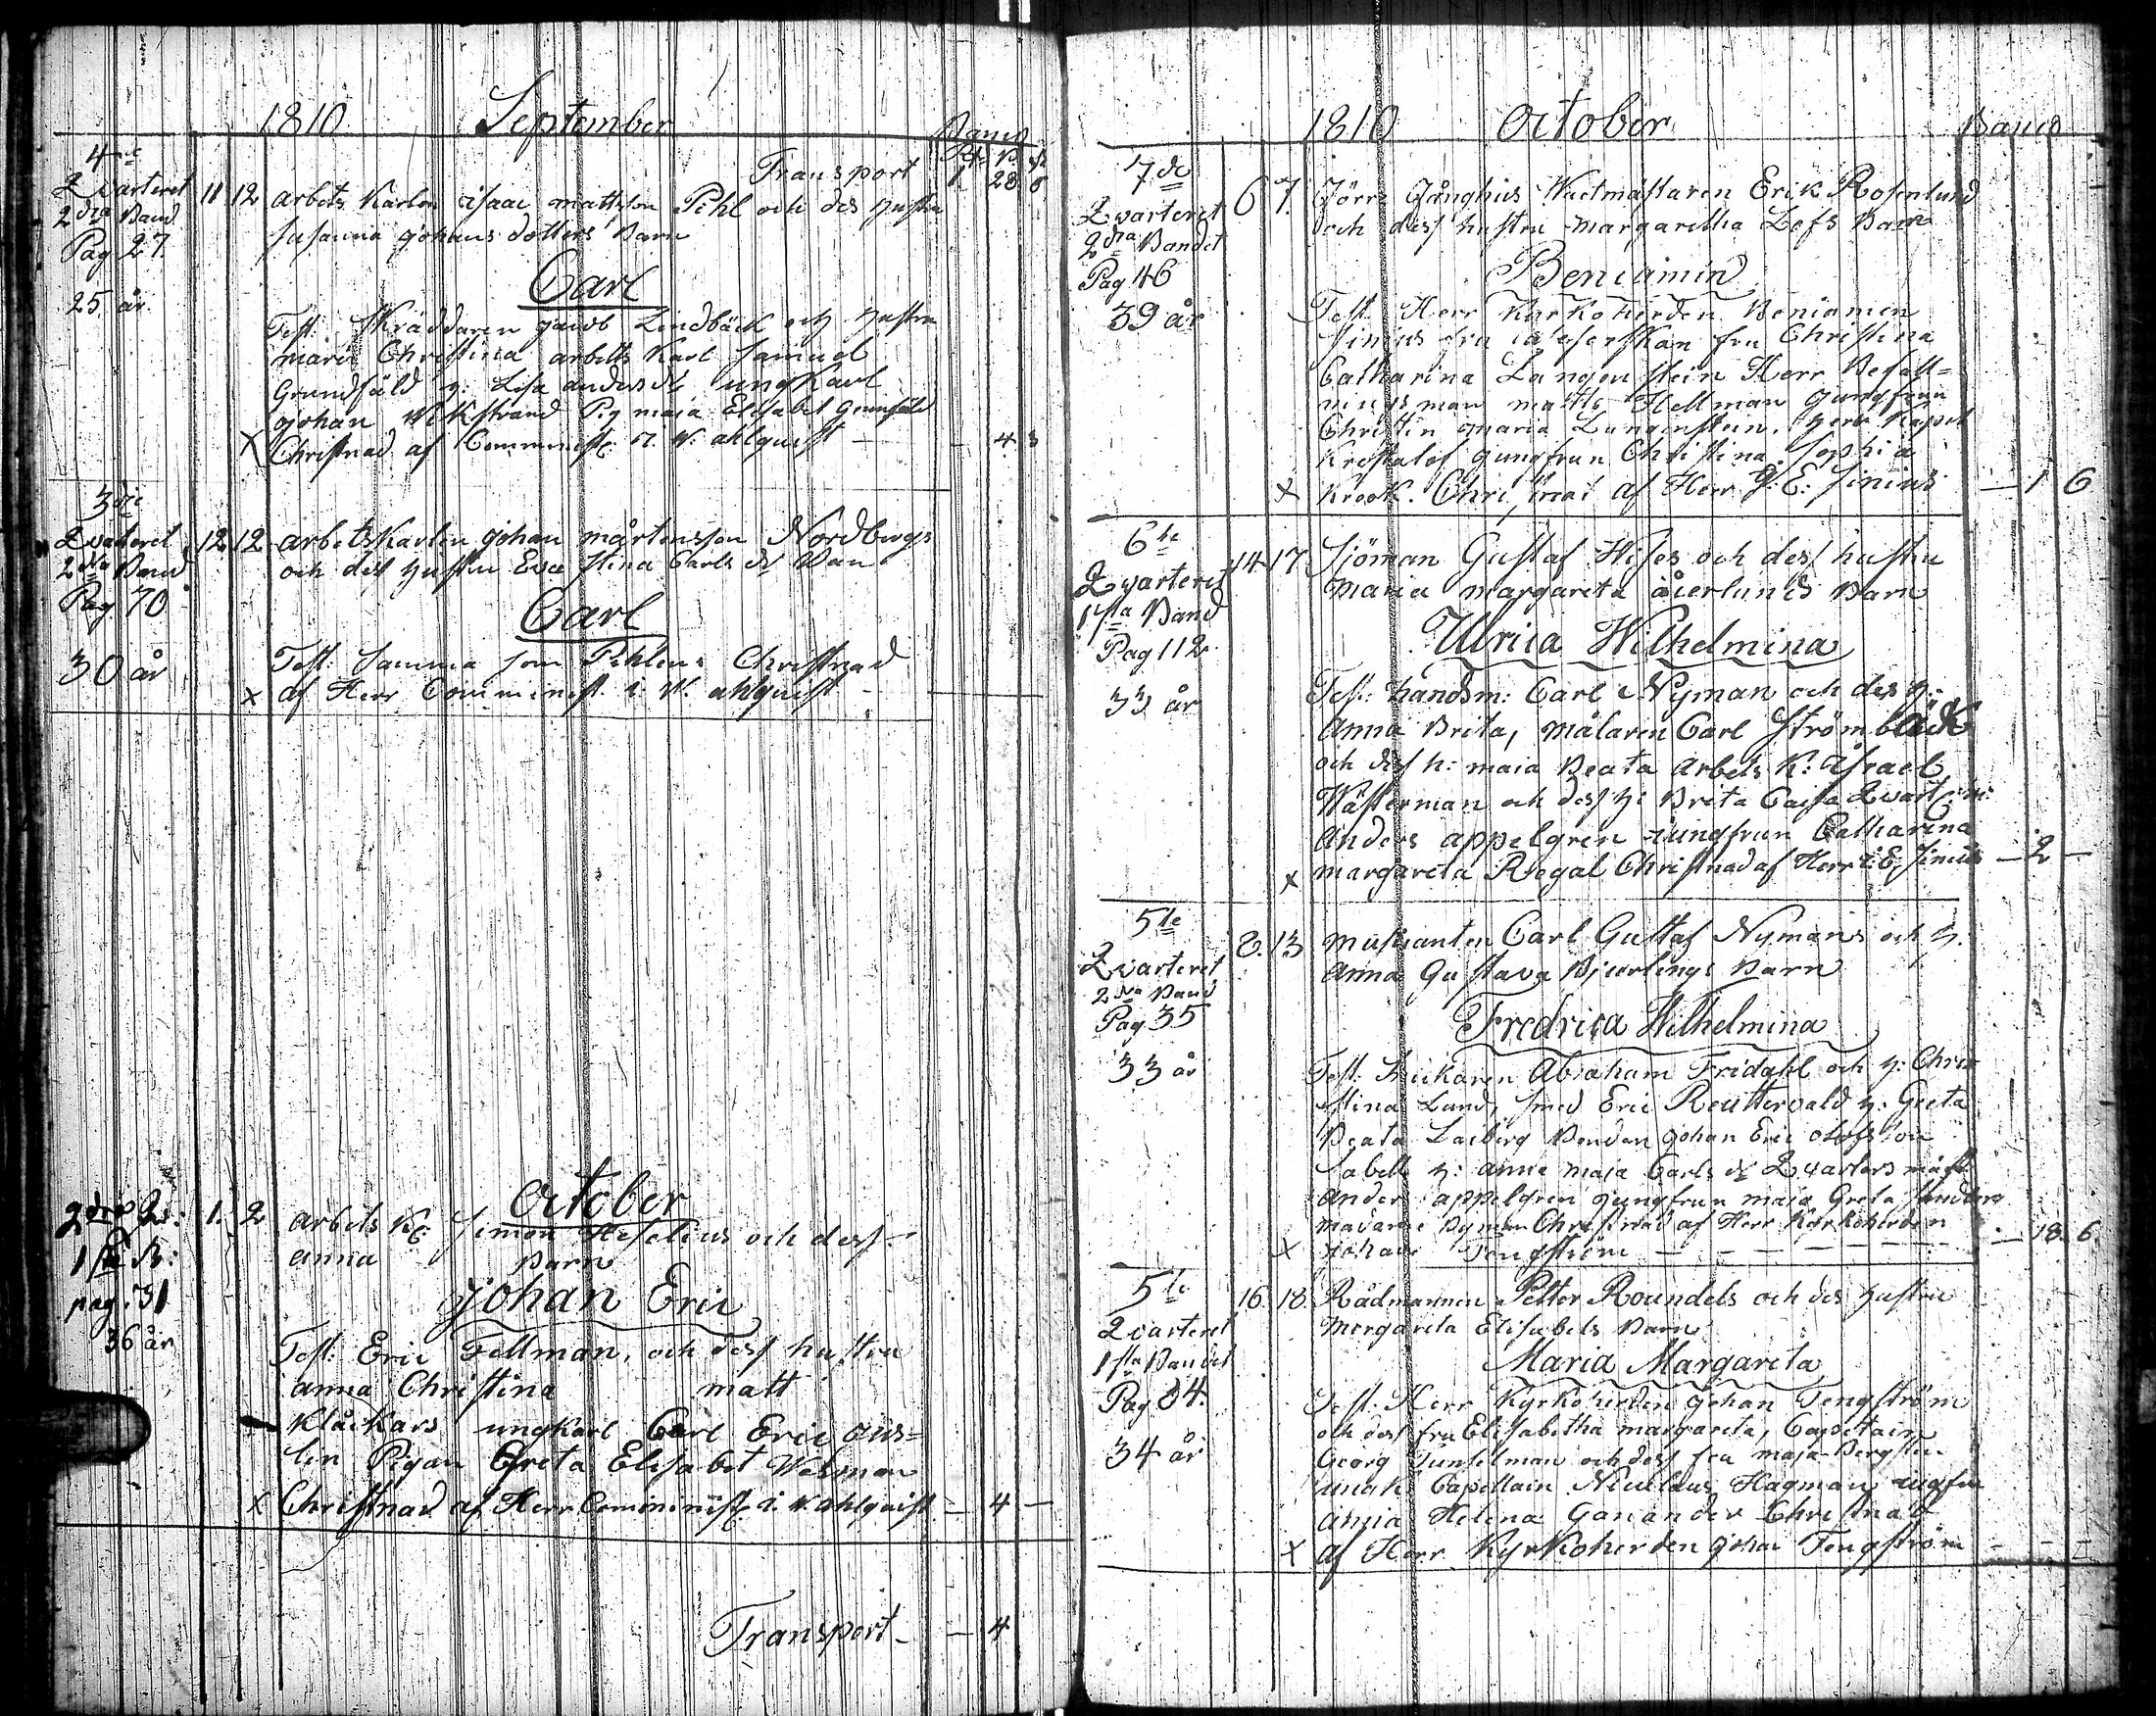 1810 September
Banco
Transport 1 28 8
4de
Qvarteret
2dra Band
Pag 27.
25. år.
11 12 arbets Karlen isaac mattsson Pihl och des hustru
Susanna johans dotters Barn
Carl
Test. Skräddaren jacob Lindbäck och hustru
maria Christina arbetts Karl Samuel
Grundfäld h. Lisa anders dr ungKarl
johan Wikstrand Pig maia Elisabet
X Christnad af Comminist. A. W. ahlquist — — 4 8
3die
Qvarteret
2dra Band
Pag. 70
30 år
12 12 arbetsKarlen johan mårtensson Nordbergs
och des hustru Eva Stina Carls dr Barn
Carl
Test: Samma som Pihlens Christnad
x af Herr Comminist. A. W. ahlquist —
October
2dra Q:
1sta B:
pag: 31
36 år
1. 2 arbets K: Simon Heselius och dess
anna Barn
johan Eric
Test: Eric Fellman, och dess hustru
anna Christina matt
Klåckars ungkarl Carl Eric
lin Pigan Greta Elisabet Wesman
x Christnad af Herr Comminist. A. W. ahlquist — 4 —
Transport — — 4
1810 October Banco
7de
Qvarteret
2dra Bandet
Pag 46
39 år
6 7. Wactmästaren Erik Rosenlund
och dess hustru margaretha Lofs Barn
Beniamin
Test. Herr Kyrkoherden Beniamin
fru Christina
Catharina Langenstein Herr Befall=
ningsman matts Hellman jungfrun
Christin maria Langenstein. Herr
jungfrun Christina Sophia
x Krook. Christnat af Herr J: E: — 1 6
6te
Qvarteret
1sta Band
Pag 112
33 år
14 17. Sjöman Gustaf Hises och dess hustru
Maria margareta åkerlunds Barn
Ulrica Wilhelmina
Test: handsm: Carl Nyman och des h:
Anna Brita, målaren Carl Strömbäck
och dess h: maia Beata Arbets K:
Wästerman och dess h: Brita Caisa Qvart: m:
Anders appelgren jungfrun Catharina
x margareta Regal Christnad af Herr — 2 —
5te
Qvarteret
2dra Band
Pag 35
33 år
8. 13 musicanten Carl Gustaf Nymans och h.
Anna Gustava Bjeorlings Barn
Fredrica Wilhelmina
Test: Abraham Fridahl och h: Chri
stina Lund, Smed Eric Reuttervald h: Greta
Beata Laiberg Bonden johan Eric olofsson
Sabell h: anna maja Carls dr Qvarters mäst
Anders appelgren jungfrun maja Greta
madame Nyman Christnad af Herr Kyrkoherden
x johan Tengström — — — — — — 18. 6.
5te
Qvarteret
1sta Bandet
Pag 84.
34 år
16. 18. Rådmannen Petter Roundels och des hustru
Margareta Elisabets Barn
Maria Margareta
Test: Herr Kyrkoherden johan Tengström
och dess fru Elisabetha margareta, Capitain
Georg Junselman och dess fru maja Bergsten
Capellain Niculaus Hagman
Anna Helena Ganander Christnad
X af Herr Kyrkoherden johan Tengström — — —